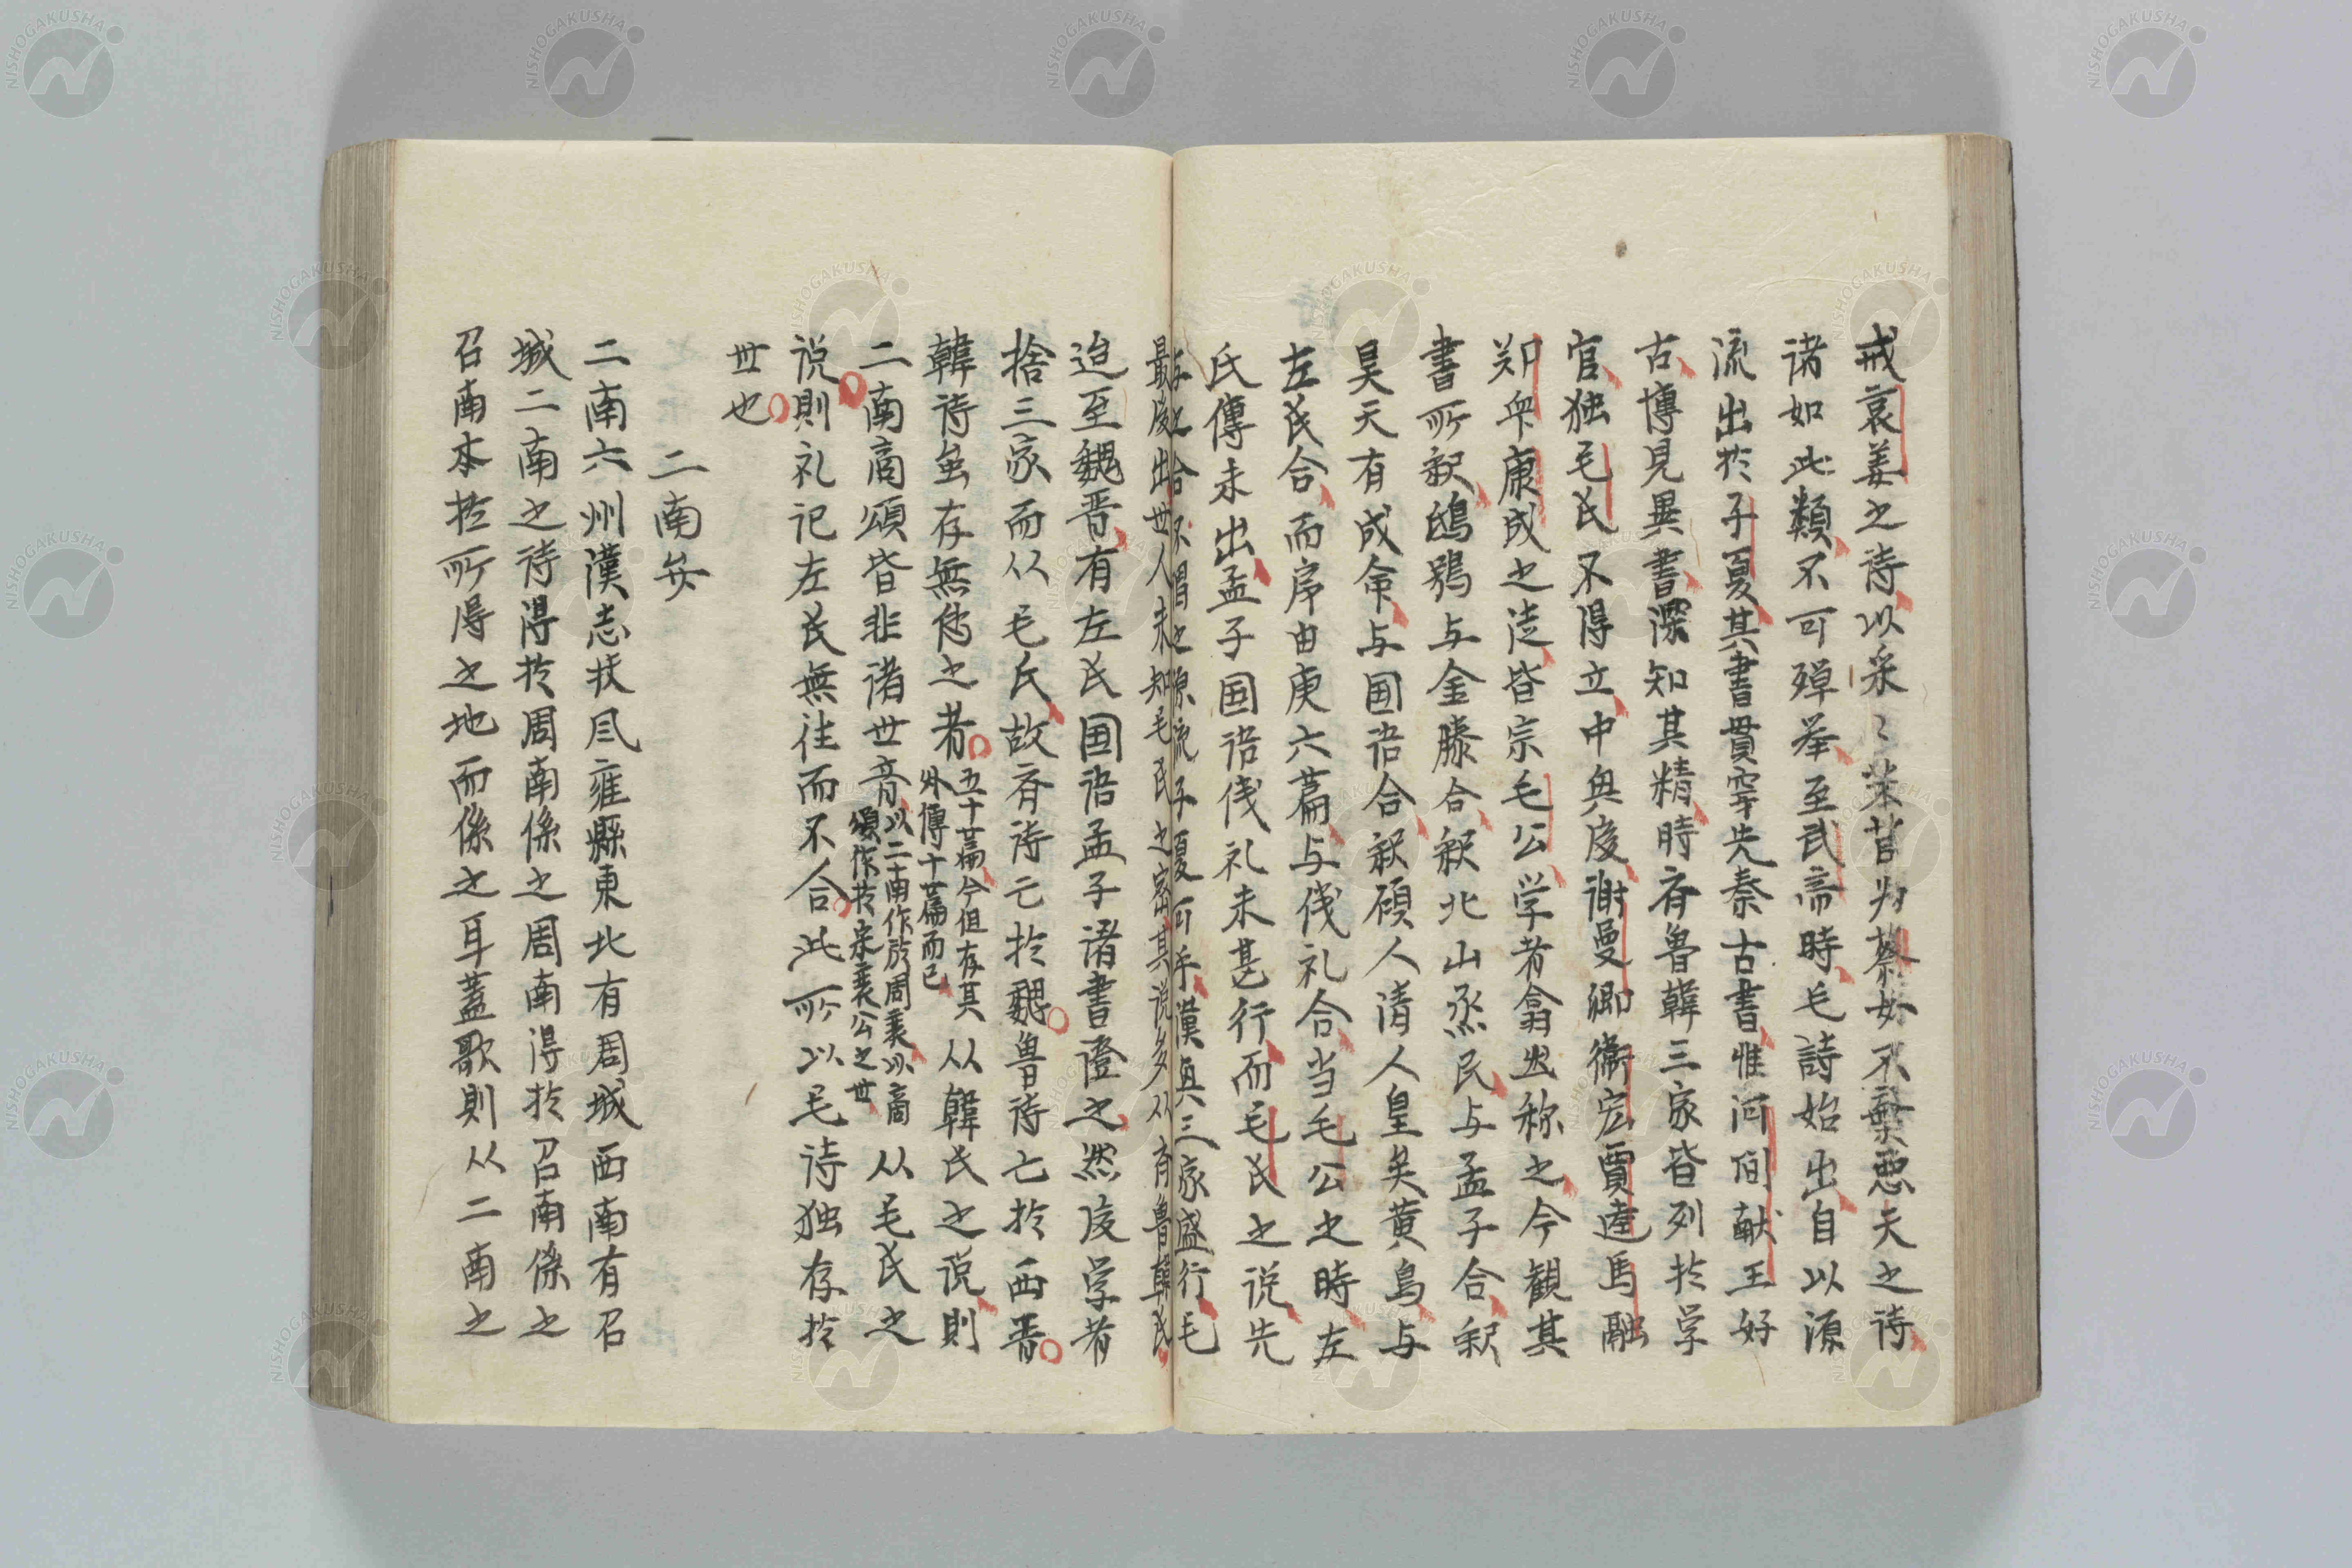 戒哀姜之詩以采〻芣苢为蔡女不棄悪夫之詩
诸如此類不可殫举至武帝時毛詩始出自以源
流出於子夏其書貫穿先秦古書惟河间献王好
古博見異書深知其精時斉魯韓三家皆列於学
官独毛氏不得立中興後謝曼卿衛宏賈逵馬融
郑众康成之徒皆宗毛公学者翕然称之今観其
書所釈鴟鴞与金縢合釈北山烝民与孟子合釈
昊天有成命与国语合釈碩人清人皇矣黄鳥与
左氏合而序由庚六篇与儀礼合当毛公之時左
氏傳未出孟子国语儀礼未甚行而毛氏之说先
与之合不謂之源流子夏可乎漢興三家盛行毛
最後出世人未知毛氏之密其说多从斉魯韓氏
迨至魏晋有左氏国语孟子诸書證之然後学者
捨三家而从毛氏故斉诗亡於魏魯诗亡於西晋
韓诗虽存無传之者五十篇今但存其
外傳十篇而已从韓氏之说則
二南商頌皆非诸世音以二南作於周衰以商
頌作於宋襄公之世从毛氏之
说則礼记左氏無往而不合此所以毛诗独存於
世也
二南弁
二南六州漢志扶风雍縣東北有周城西南有召
城二南之诗得於周南係之周南得於召南係之
召南本於所得之地而係之耳蓋歌則从二南之
NISHOGAKUSHA